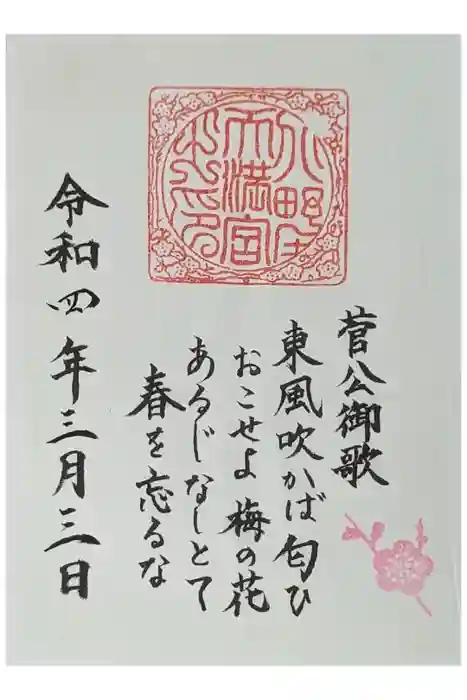 天満宮
之印
菅公御歌
東風吹かば匂ひ
おこせよ梅の花
あるじなしとて
春を忘るな
令和四年三月三日